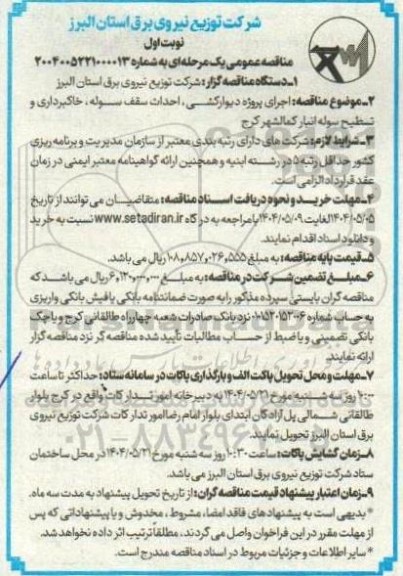 شرکت توزیع نیروی برق استان البرز
نوبت اول
مناقصه عمومی یک مرحله‌ای به شماره ۲۰۰۴۰۰۵۲۲۱۰۰۰۰۱۳
۱ـ دستگاه مناقصه گزار: شرکت توزیع نیروی برق استان البرز
۲ـ موضوع مناقصه: اجرای پروژه دیوارکشی، احداث سقف سوله، خاکبرداری و
تسطیح سوله انبار کمالشهر کرج
۳ـ شرایط لازم: شرکت های دارای رتبه بندی معتبر از سازمان مدیریت و برنامه ریزی
کشور حداقل رتبه ۵ در رشته ابنیه و همچنین ارائه گواهینامه معتبر ایمنی در زمان
عقد قرارداد الزامی است.
۴ـ مهلت خرید و نحوه دریافت اسناد مناقصه: متقاضیان می توانند از تاریخ
۱۴۰۴/۰۵/۰۵ لغایت ۱۴۰۴/۰۵/۰۹ با مراجعه به درگاه www.setadiran.ir نسبت به خرید
و دانلود اسناد اقدام نمایند.
۵ـ قیمت پایه مناقصه: به مبلغ ۱۰۸,۸۵۷,۰۲۶,۵۵۵ ریال می باشد.
۶ـ مبلغ تضمین شرکت در مناقصه: به مبلغ ۶,۱۲۰,۰۰۰,۰۰۰ ریال می باشد که
مناقصه گران بایستی سپرده مذکور را به صورت ضمانتنامه بانکی یا فیش بانکی واریزی
به حساب شماره نزد بانک صادرات شعبه چهارراه طالقانی کرج و یا چک
بانکی تضمینی و یا ضبط از حساب مطالبات تایید شده مناقصه گر نزد مناقصه گزار
ارائه نمایند.
۷ـ مهلت و محل تحویل پاکت الف و بارگذاری پاکات در سامانه ستاد: حداکثر تا ساعت
۱۰:۰۰ روز سه شنبه مورخ ۱۴۰۴/۰۵/۲۱ به دبیرخانه امور تدارکات واقع در کرج بلوار
طالقانی شمالی پل آزادگان ابتدای بلوار امام رضا امور تدارکات شرکت توزیع نیروی
برق استان البرز تحویل نمایند.
۸ـ زمان گشایش پاکات: ساعت ۱۰:۳۰ روز سه شنبه مورخ ۱۴۰۴/۰۵/۲۱ در محل ساختمان
ستاد شرکت توزیع نیروی برق استان البرز می باشد.
۹ـ زمان اعتبار پیشنهاد قیمت مناقصه گران: از تاریخ تحویل پیشنهاد به مدت سه ماه.
* بدیهی است به پیشنهاد های فاقد امضا، مشروط، مخدوش و یا پیشنهاداتی که پس
از مهلت مقرر در این فراخوان واصل می گردند، مطلقا ترتیب اثر داده نخواهد شد.
* سایر اطلاعات و جزئیات مربوط در اسناد مناقصه مندرج است.